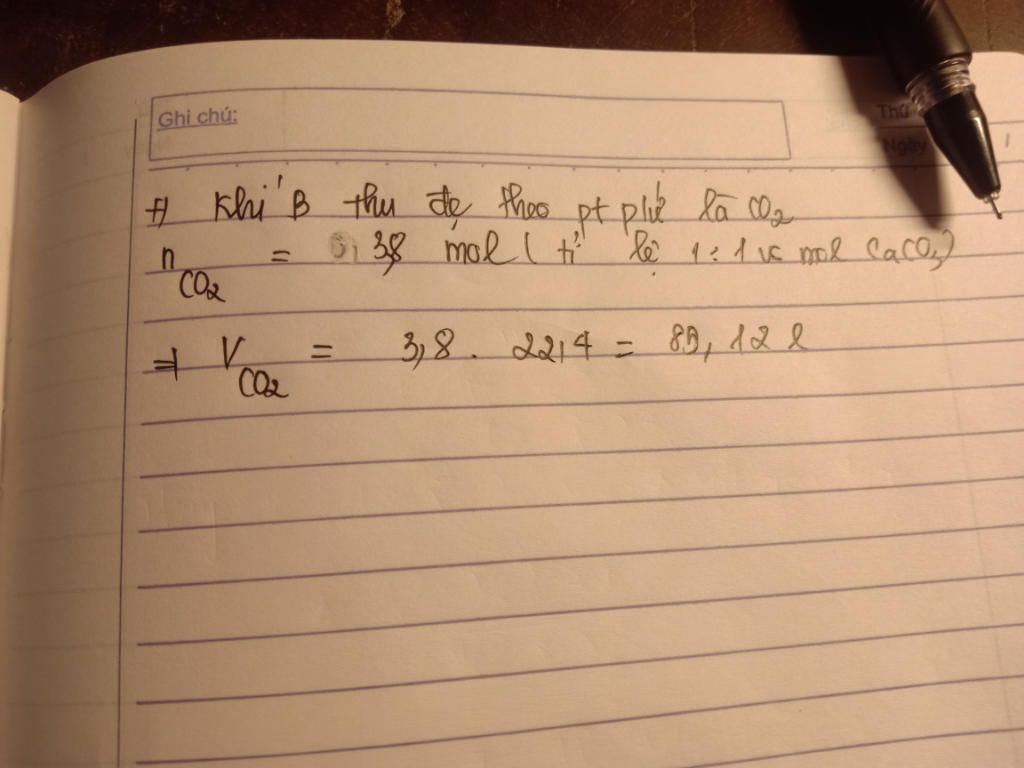 Ghi chú:
Thứ
Ngày
+) Khí B thu đc theo pt pứ là CO2
n CO2 = 3,8 mol ( tỉ lệ 1 : 1 vs mol CaCO3)
⇒ V CO2 = 3,8 . 22,4 = 85,12 l